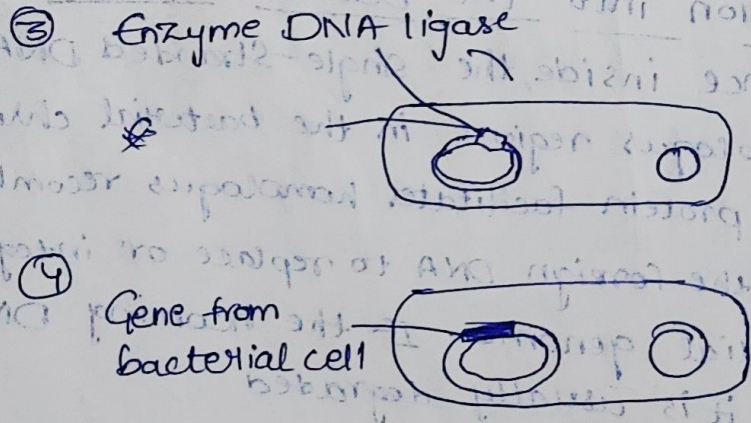 ③ Enzyme DNA ligase
④ Gene from
bacterial cell